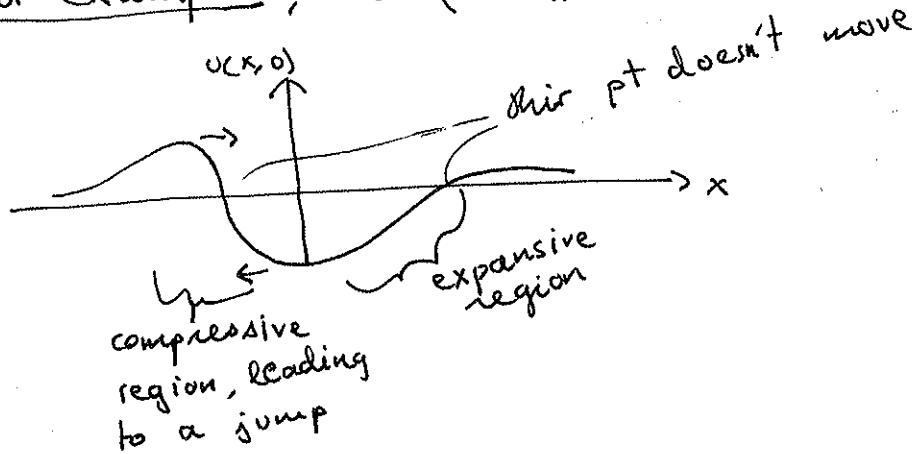 For example,
u(x,0)
this pt doesn't move
x
expansive
region
compressive
region, leading
to a jump